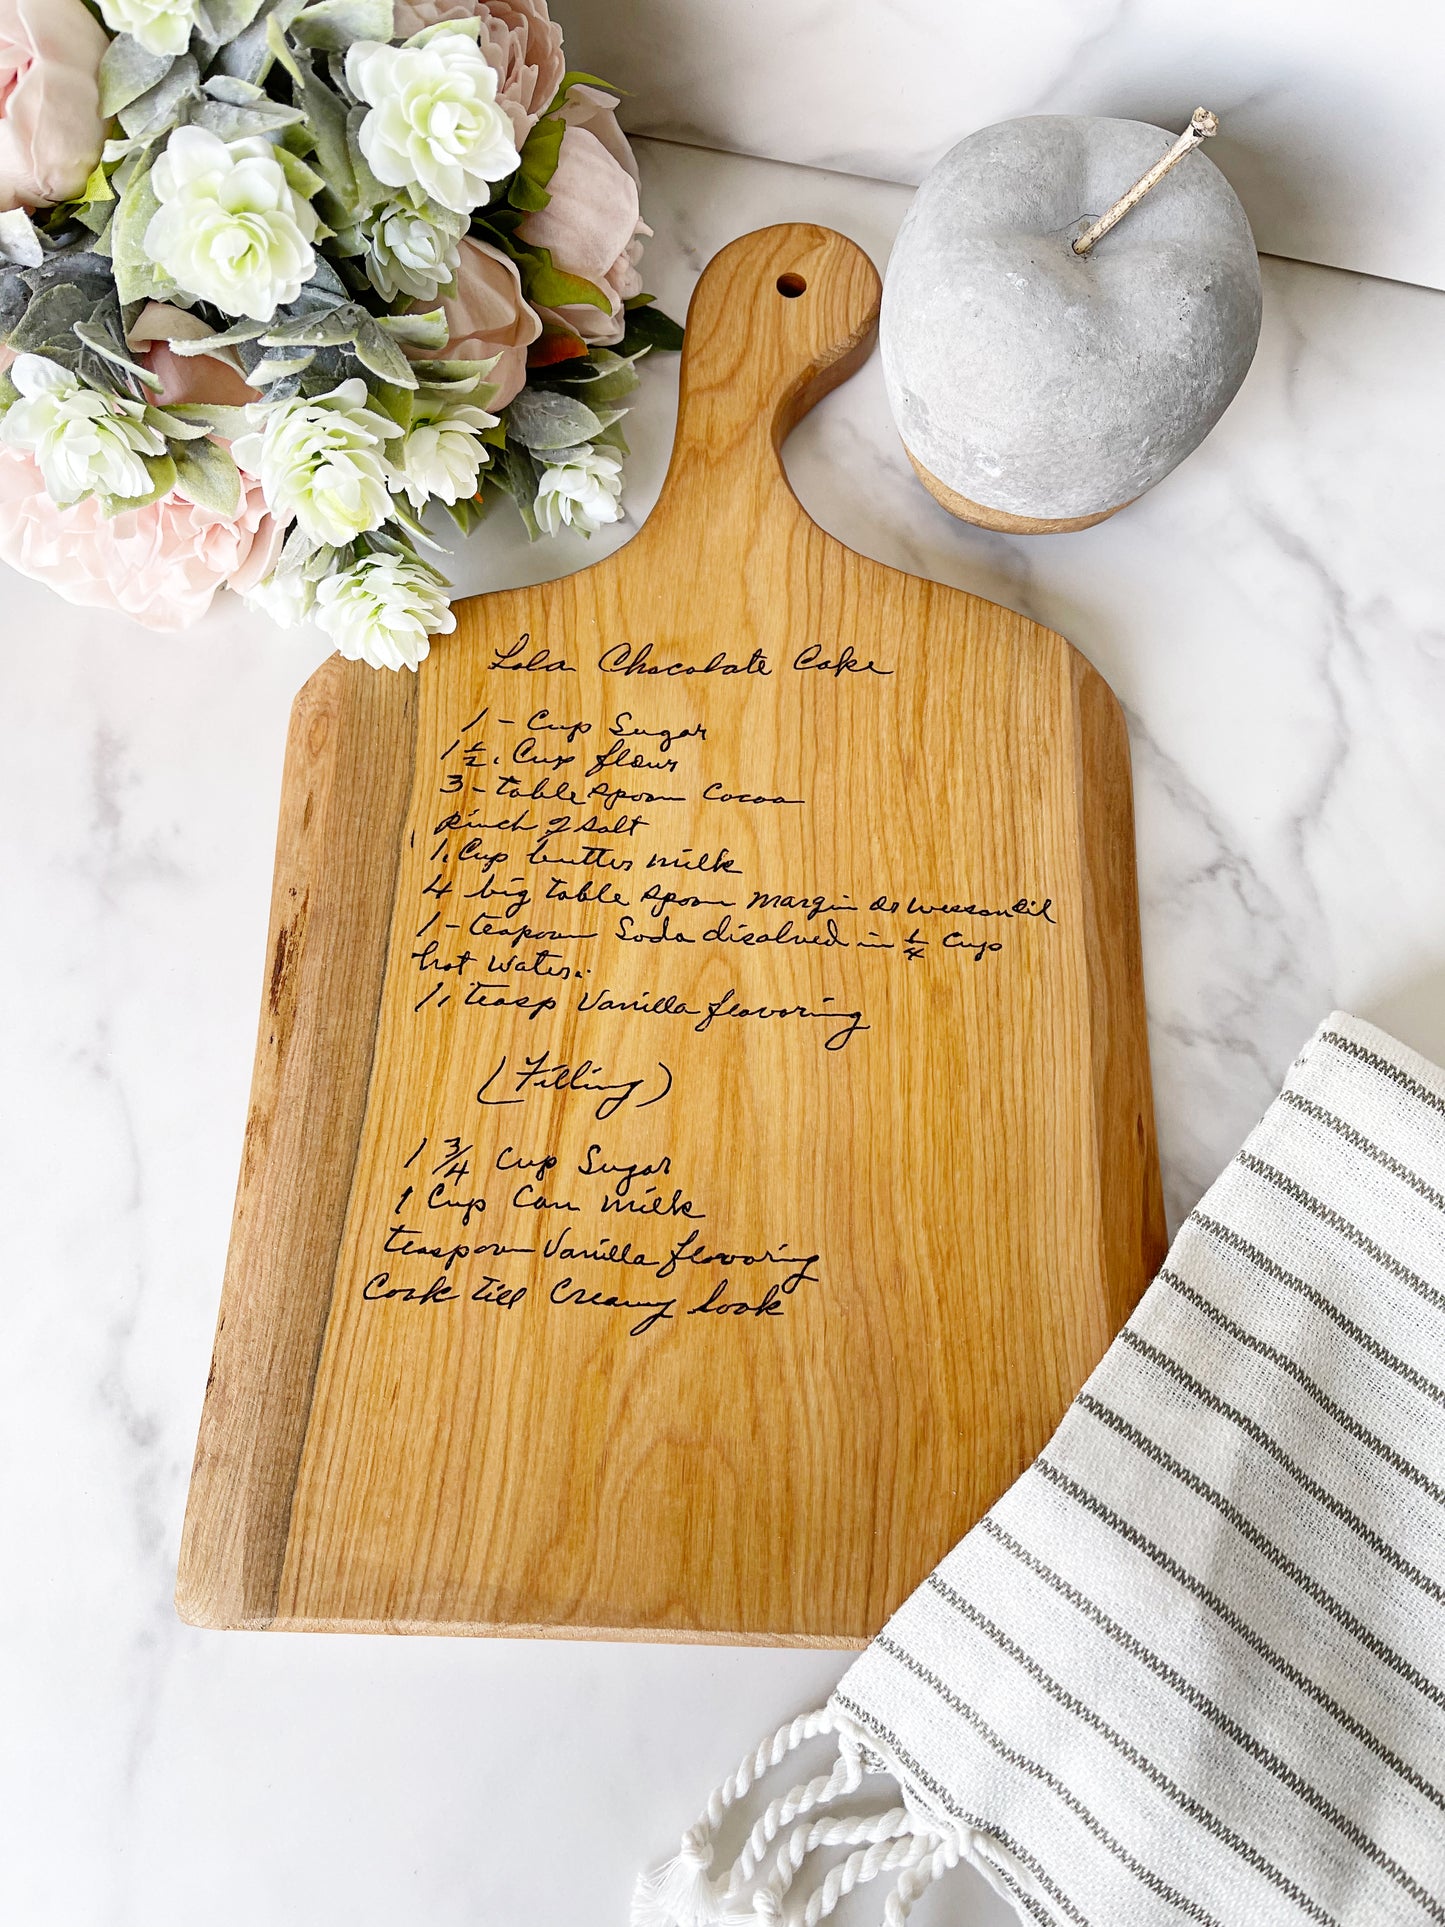 Lola Chocolate Cake
1 - Cup Sugar
1 1/2. Cup flour
3 - table spoon Cocoa
pinch of salt
1. Cup butter milk
4 big table spoon margin or wesson oil
1 - teapoon Soda disolved in 1/4 Cup
hot water.
1, teasp Vanilla flavoring
(Filling)
1 3/4 Cup Sugar
1 Cup Can milk
teaspoon Vanilla flavoring
Cook till Creamy look